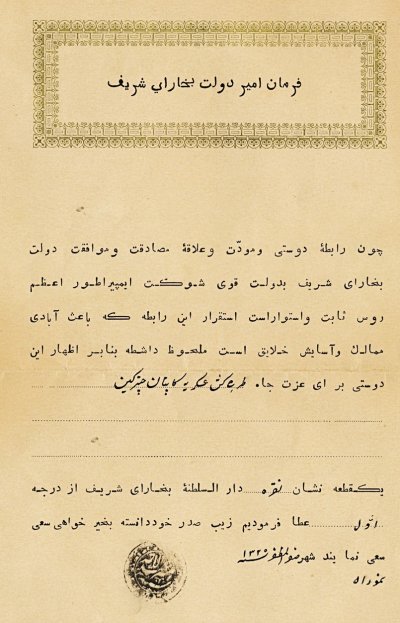 فرمان امیر دولت بخارای شریف
چون رابطهٔ دوستی ومودّت وعلاقهٔ مصادقت وموافقت دولت
بخارای شریف بدولت قوی شوکت ایمپیراطور اعظم
روس ثابت واستواراست استقرار این رابطه که باعث آبادی
ممالک وآسایش خلایق است ملحوظ داشطه بنابر اظهار این
دوستی بر ای عزت جاه
یکقطعه نشان نقره دار السلطنهٔ بخارای شریف از درجه
اوّل عطا فرمودیم زیب صدر خوددانسته بخیر خواهی سعی
سعی نما یند شهر ۱۳۲۵